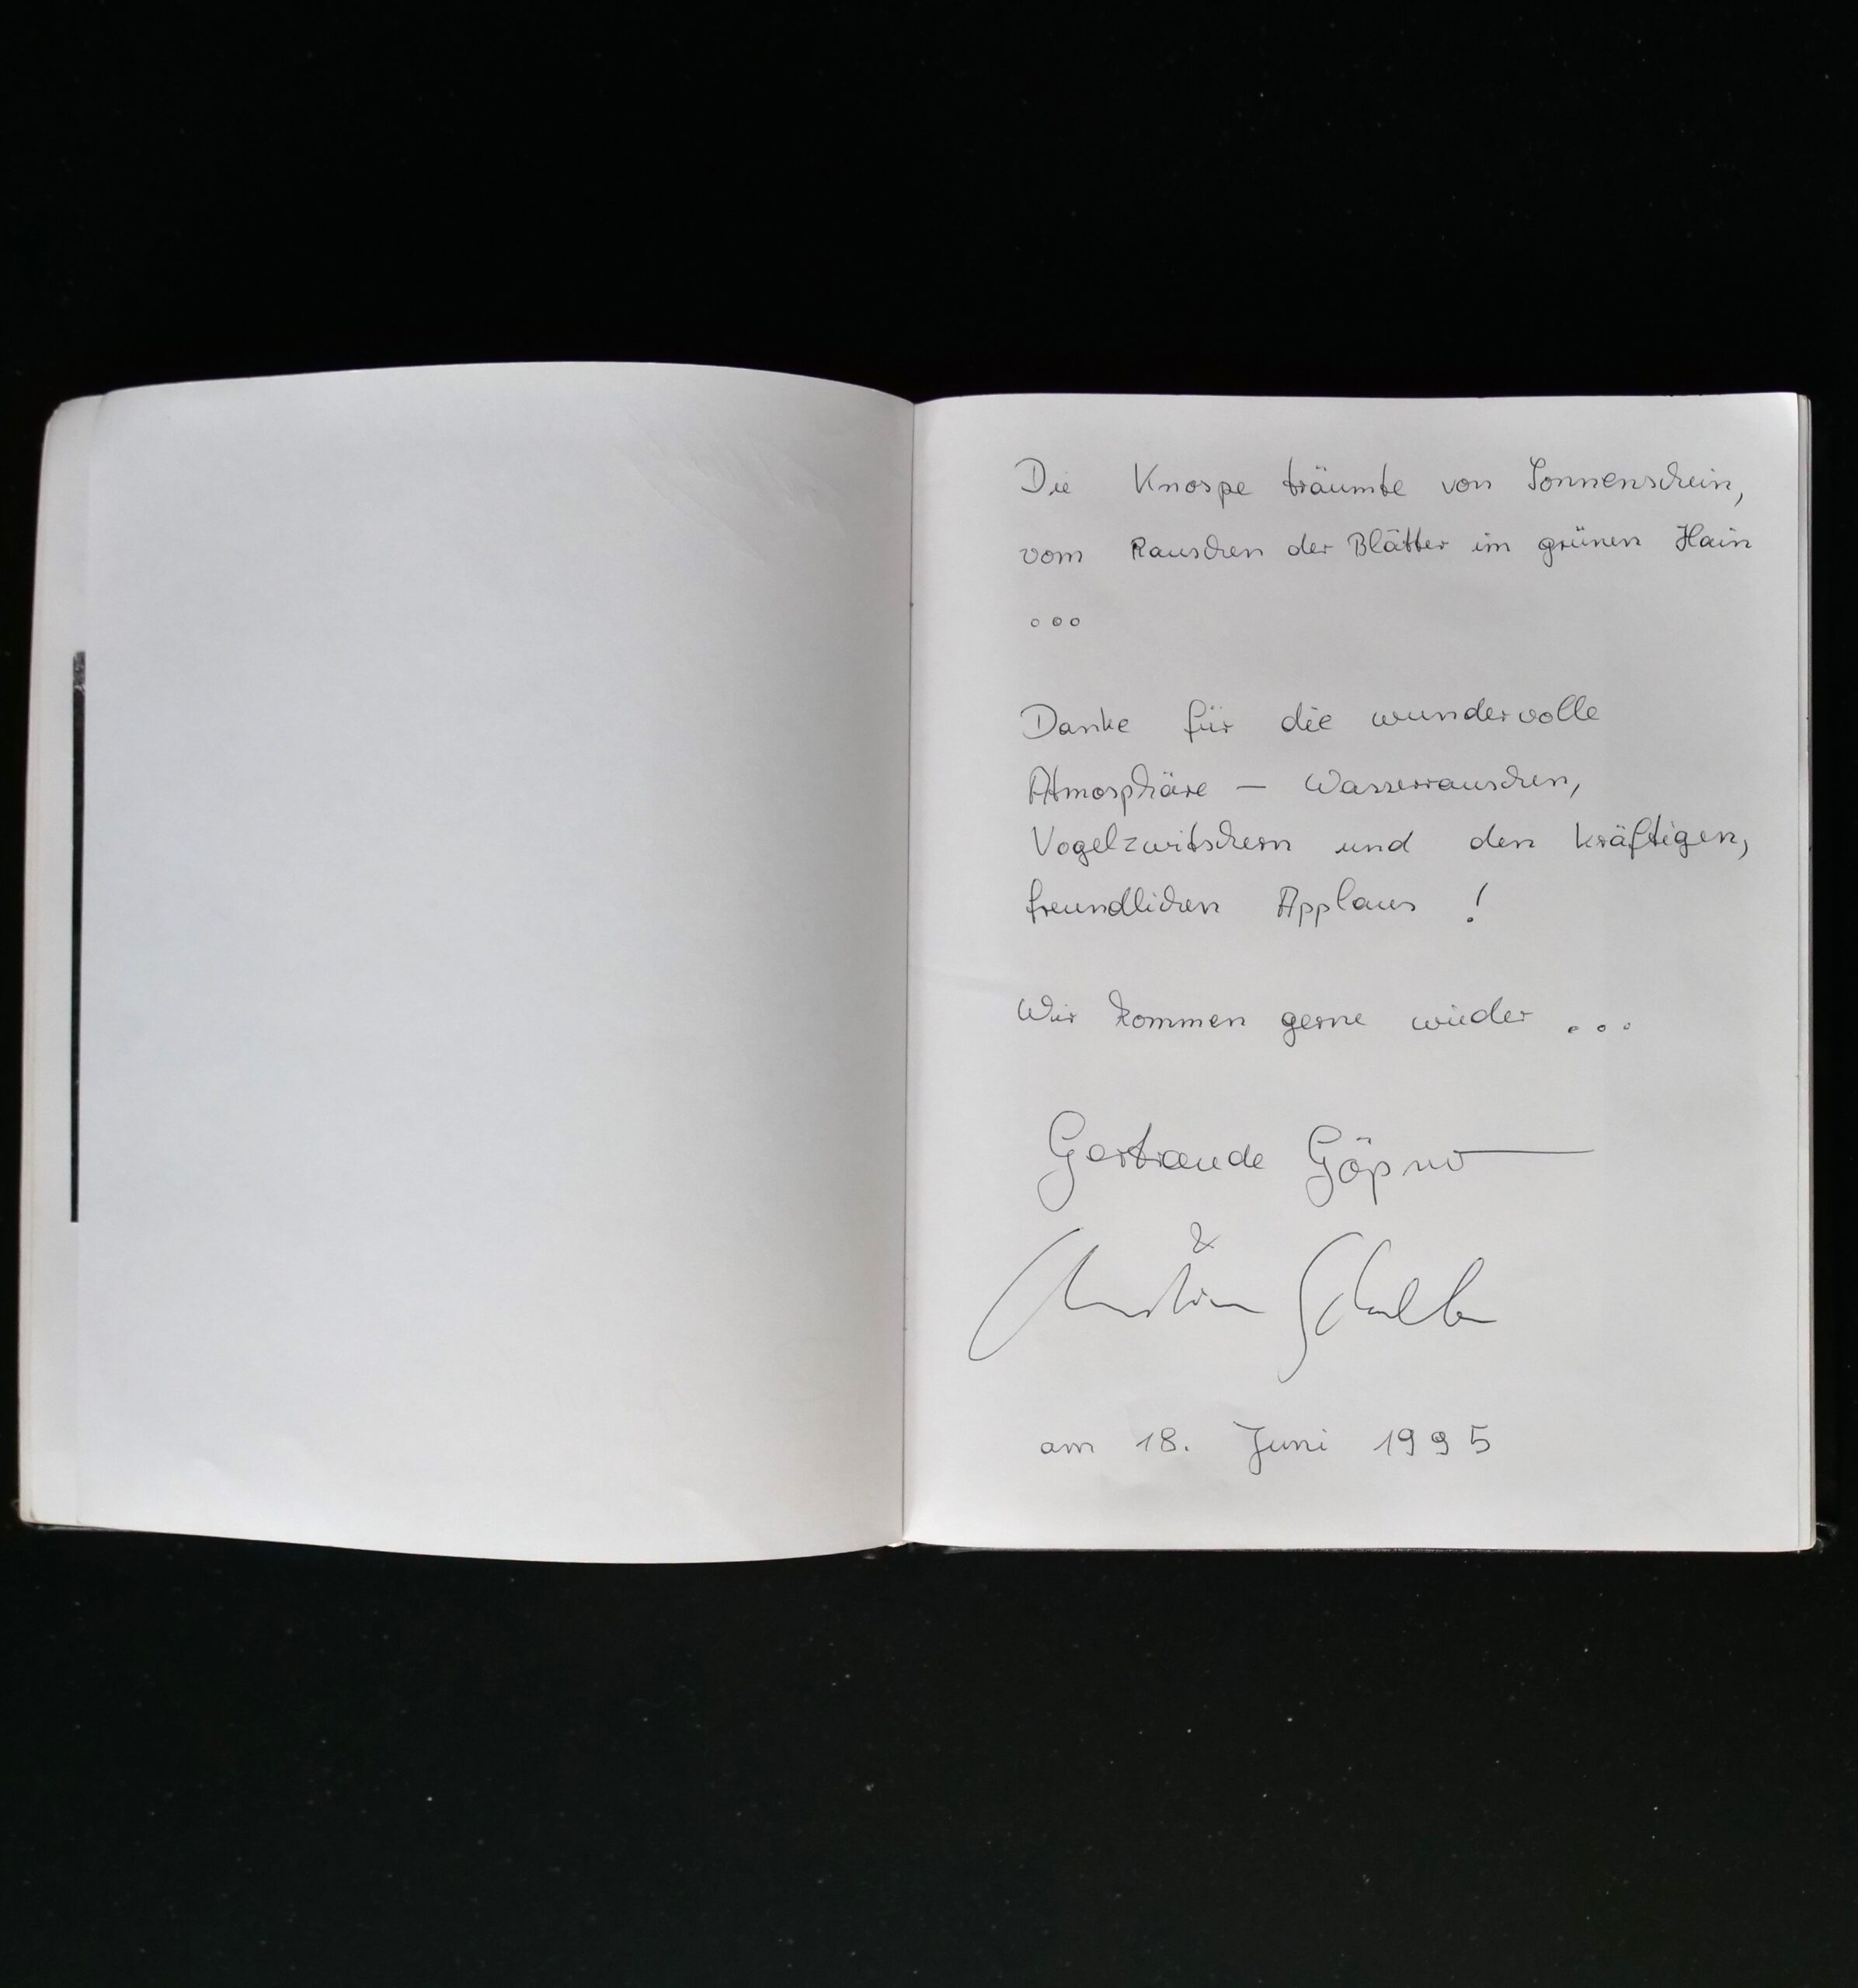 Die Knospe träumte von Sonnenschein,
vom Rauschen der Blätter im grünen Hain
...
Danke für die wundervolle
Atmosphäre – Wasserrauschen,
Vogelzwitschern und den kräftigen,
freundlichen Applaus !
Wir kommen gerne wieder ...
Gertraude
&
am 18. Juni 1995